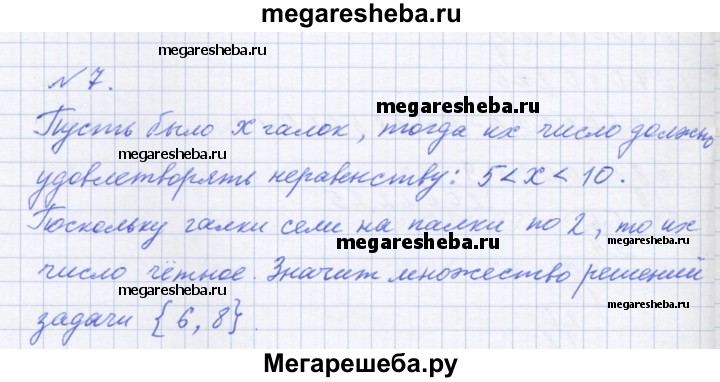 megaresheba.ru
megaresheba.ru
№ 7.
megaresheba.ru
Пусть было x галок, тогда их число должно
megaresheba.ru
удовлетворять неравенству: 5 < x < 10.
Поскольку галки сели на палки по 2, то их
megaresheba.ru
число чётное. Значит множество решений
megaresheba.ru
megaresheba.ru
задачи {6, 8}.
Мегарешеба.ру